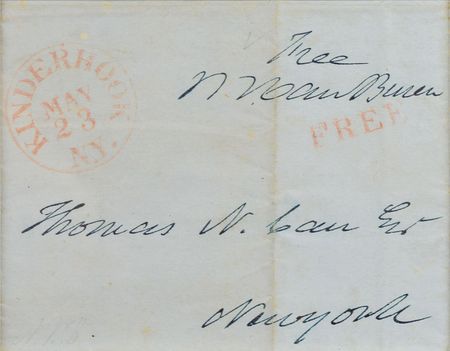 KINDERHOOK
MAY
23
N.Y.
Free
M. Van Buren
FREE
Thomas N. Carr Esq
New york